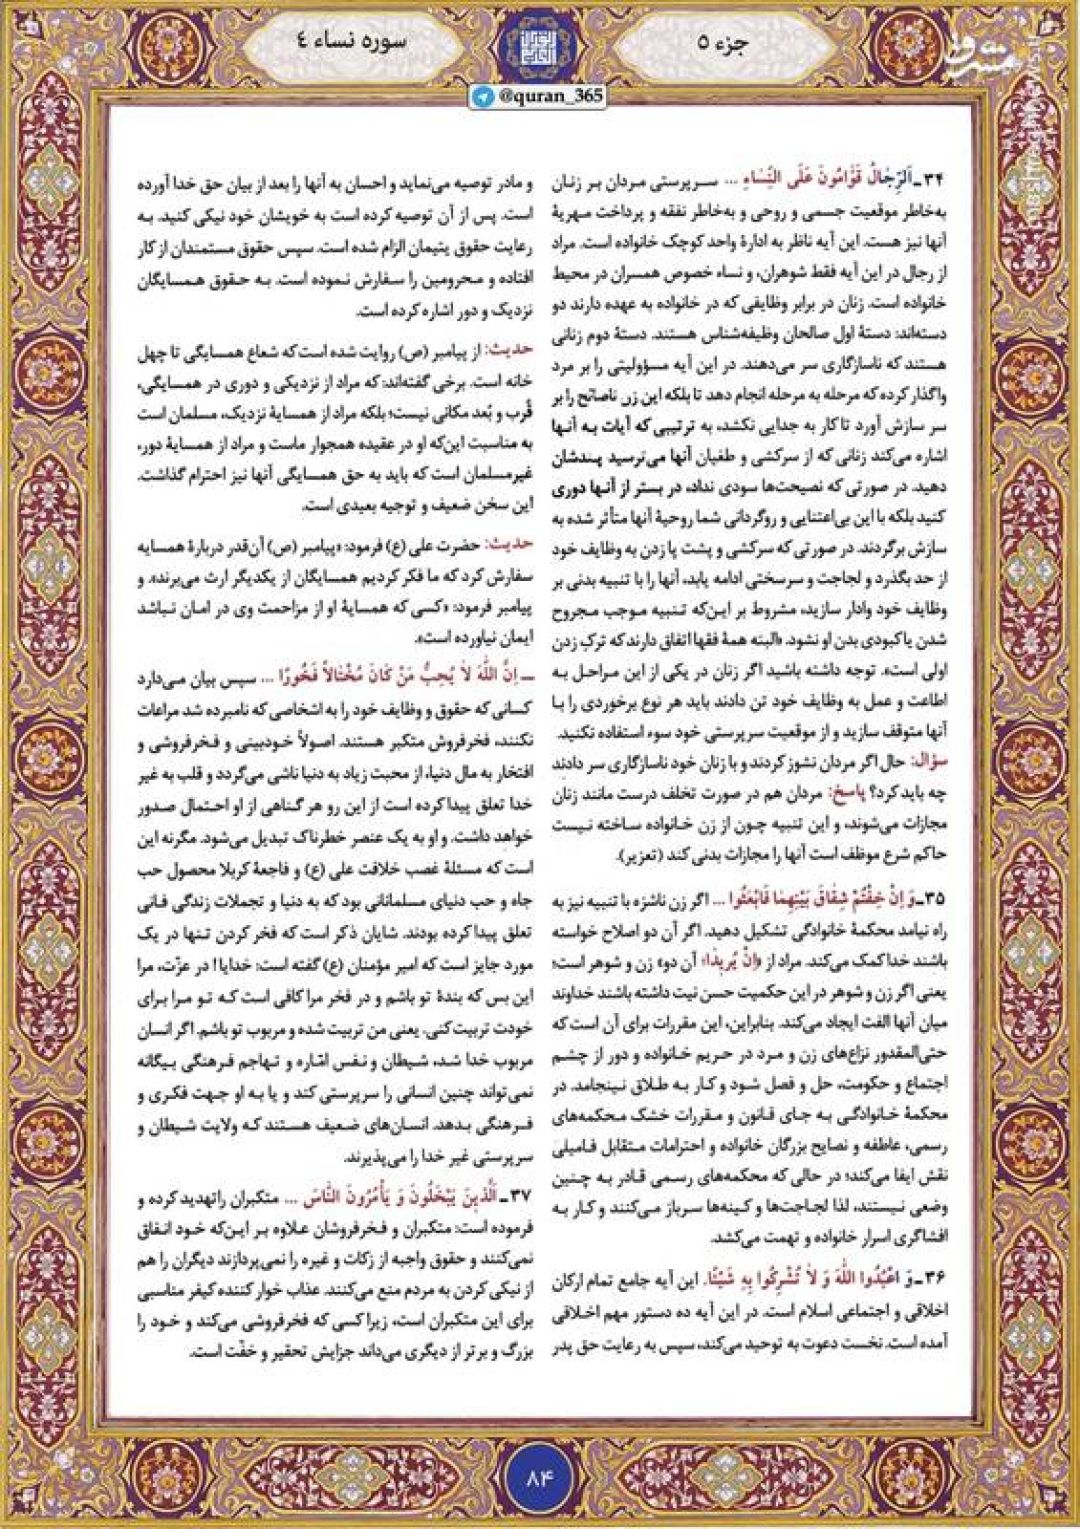 جزء ۵
سوره نساء ٤
مشرق
@quran_365
۳۴ـ اَلرِّجٰالُ قَوّٰامُونَ عَلَى النِّسٰاءِ ... سرپرستی مردان بر زنان
به‌خاطر موقعیت جسمی و روحی و به‌خاطر نفقه و پرداخت مهریهٔ
آنها نیز هست. این آیه ناظر به ادارهٔ واحد کوچک خانواده است. مراد
از رجال در این آیه فقط شوهران، و نساء خصوص همسران در محیط
خانواده است. زنان در برابر وظایفی که در خانواده به عهده دارند دو
دسته‌اند: دستهٔ اول صالحان وظیفه‌شناس هستند. دستهٔ دوم زنانی
هستند که ناسازگاری سر می‌دهند. در این آیه مسؤولیتی را بر مرد
واگذار کرده که مرحله به مرحله انجام دهد تا بلکه این زن ناصالح را بر
سر سازش آورد تا کار به جدایی نکشد، به ترتیبی که آیات به آنها
اشاره می‌کند زنانی که از سرکشی و طغیان آنها می‌ترسید پندشان
دهید. در صورتی که نصیحت‌ها سودی نداد، در بستر از آنها دوری
کنید بلکه با این بی‌اعتنایی و روگردانی شما روحیهٔ آنها متأثر شده به
سازش برگردند. در صورتی که سرکشی و پشت پا زدن به وظایف خود
از حد بگذرد و لجاجت و سرسختی ادامه یابد، آنها را با تنبیه بدنی بر
وظایف خود وادار سازید، مشروط بر این‌که تنبیه موجب مجروح
شدن یا کبودی بدن او نشود. «البته همهٔ فقها اتفاق دارند که ترک زدن
اولی است». توجه داشته باشید اگر زنان در یکی از این مراحل به
اطاعت و عمل به وظایف خود تن دادند باید هر نوع برخوردی را با
آنها متوقف سازید و از موقعیت سرپرستی خود سوء استفاده نکنید.
سؤال: حال اگر مردان نشوز کردند و با زنان خود ناسازگاری سر دادند
چه باید کرد؟ پاسخ: مردان هم در صورت تخلف درست مانند زنان
مجازات می‌شوند، و این تنبیه چون از زن خانواده ساخته نیست
حاکم شرع موظف است آنها را مجازات بدنی کند (تعزیر).
۳۵ـ وَ اِنْ خِفْتُمْ شِقٰاقَ بَيْنِهِمٰا فَابْعَثُوا ... اگر زن ناشزه با تنبیه نیز به
راه نیامد محکمهٔ خانوادگی تشکیل دهید. اگر آن دو اصلاح خواسته
باشند خدا کمک می‌کند. مراد از «اِنْ يُرِيدٰا» آن دو» زن و شوهر است؛
یعنی اگر زن و شوهر در این حکمیت حسن نیت داشته باشند خداوند
میان آنها الفت ایجاد می‌کند. بنابراین، این مقررات برای آن است که
حتی‌المقدور نزاع‌های زن و مرد در حریم خانواده و دور از چشم
اجتماع و حکومت، حل و فصل شود و کار به طلاق نینجامد. در
محکمهٔ خانوادگی به جای قانون و مقررات خشک محکمه‌های
رسمی، عاطفه و نصایح بزرگان خانواده و احترامات متقابل فامیلی
نقش ایفا می‌کند؛ در حالی که محکمه‌های رسمی قادر به چنین
وضعی نیستند، لذا لجاجت‌ها و کینه‌ها سرباز می‌کنند و کار به
افشاگری اسرار خانواده و تهمت می‌کشد.
۳۶ـ وَ اعْبُدُوا اللّٰهَ وَ لٰا تُشْرِكُوا بِهِ شَيْئًا. این آیه جامع تمام ارکان
اخلاقی و اجتماعی اسلام است. در این آیه ده دستور مهم اخلاقی
آمده است. نخست دعوت به توحید می‌کند، سپس به رعایت حق پدر
و مادر توصیه می‌نماید و احسان به آنها را بعد از بیان حق خدا آورده
است. پس از آن توصیه کرده است به خویشان خود نیکی کنید. به
رعایت حقوق یتیمان الزام شده است. سپس حقوق مستمندان از کار
افتاده و محرومین را سفارش نموده است. به حقوق همسایگان
نزدیک و دور اشاره کرده است.
حدیث: از پیامبر (ص) روایت شده است که شعاع همسایگی تا چهل
خانه است. برخی گفته‌اند: که مراد از نزدیکی و دوری در همسایگی،
قُرب و بُعد مکانی نیست؛ بلکه مراد از همسایهٔ نزدیک، مسلمان است
به مناسبت این‌که او در عقیده همجوار ماست و مراد از همسایهٔ دور،
غیرمسلمان است که باید به حق همسایگی آنها نیز احترام گذاشت.
این سخن ضعیف و توجیه بعیدی است.
حدیث: حضرت علی (ع) فرمود: «پیامبر (ص) آن‌قدر دربارهٔ همسایه
سفارش کرد که ما فکر کردیم همسایگان از یکدیگر ارث می‌برند». و
پیامبر فرمود: «کسی که همسایهٔ او از مزاحمت وی در امان نباشد
ایمان نیاورده است».
ـ اِنَّ اللّٰهَ لٰا يُحِبُّ مَنْ كٰانَ مُخْتٰالًا فَخُورًا ... سپس بیان می‌دارد
کسانی که حقوق و وظایف خود را به اشخاصی که نامبرده شد مراعات
نکنند، فخرفروش متکبر هستند. اصولاً خودبینی و فخرفروشی و
افتخار به مال دنیا، از محبت زیاد به دنیا ناشی می‌گردد و قلب به غیر
خدا تعلق پیدا کرده است از این رو هر گناهی از او احتمال صدور
خواهد داشت. و او به یک عنصر خطرناک تبدیل می‌شود. مگرنه این
است که مسئلهٔ غصب خلافت علی (ع) و فاجعهٔ کربلا محصول حب
جاه و حب دنیای مسلمانانی بود که به دنیا و تجملات زندگی فانی
تعلق پیدا کرده بودند. شایان ذکر است که فخر کردن تنها در یک
مورد جایز است که امیر مؤمنان (ع) گفته است: خدایا! در عزّت، مرا
این بس که بندهٔ تو باشم و در فخر مرا کافی است که تو مرا برای
خودت تربیت کنی. یعنی من تربیت شده و مربوب تو باشم. اگر انسان
مربوب خدا شد، شیطان و نفس امّاره و تهاجم فرهنگی بیگانه
نمی‌تواند چنین انسانی را سرپرستی کند و یا به او جهت فکری و
فرهنگی بدهد. انسان‌های ضعیف هستند که ولایت شیطان و
سرپرستی غیر خدا را می‌پذیرند.
۳۷ـ اَلَّذِينَ يَبْخَلُونَ وَ يَأْمُرُونَ النّٰاسَ ... متکبران را تهدید کرده و
فرموده است: متکبران و فخرفروشان علاوه بر این‌که خود انفاق
نمی‌کنند و حقوق واجبه از زکات و غیره را نمی‌پردازند دیگران را هم
از نیکی کردن به مردم منع می‌کنند. عذاب خوار کننده کیفر مناسبی
برای این متکبران است، زیرا کسی که فخرفروشی می‌کند و خود را
بزرگ و برتر از دیگری می‌داند جزایش تحقیر و خفّت است.
۸۴